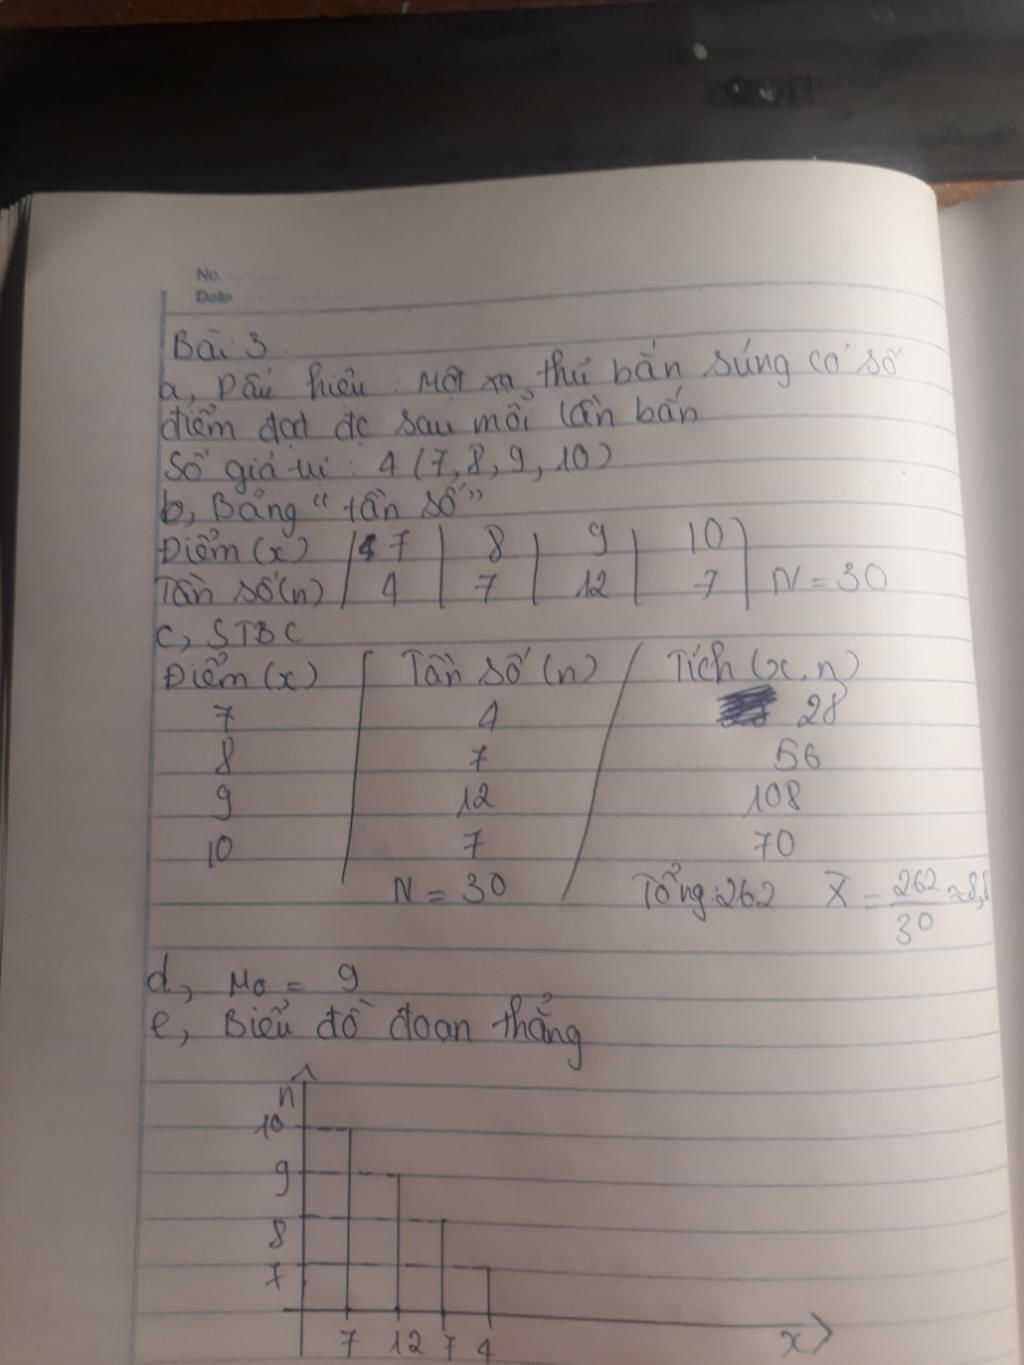 No.
Date
Bài 3
a, Dấu hiệu: Một xạ thủ bắn súng có số
điểm đạt đc sau mỗi lần bắn
Số giá trị: 4 (7, 8, 9, 10)
b, Bảng "tần số"
Điểm (x) 7 8 9 10
Tần số (n) 4 7 12 7 N = 30
c, STBC
Điểm (x) Tần số (n) Tích (x.n)
7 4 28
8 7 56
9 12 108
10 7 70
N = 30 Tổng: 262 X̄ = 262/30 ≈ 8,8
d, Mo = 9
e, Biểu đồ đoạn thẳng
n
10
9
8
7
7 12 7 4 x